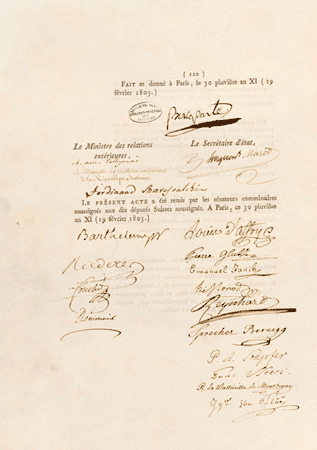 ( 120 )
FAIT et donné à Paris, le 30 pluviôse an XI (19
février 1803.)
Bonaparte
Le Ministre des relations
extérieures,
Le Secrétaire d'état,
Hugues B. Maret
Ferdinand Marescalchi
LE PRÉSENT ACTE a été remis par les sénateurs commissaires
soussignés aux dix députés Suisses soussignés. A Paris, ce 30 pluviôse
an XI (19 février 1803.)
Barthelemy
Louis d'affry
Rœderer
Pierre Glutz
Emanuel Jauch
Fouché
Monod
Reynhard
Démeunier
Sprecher Bernegg
P. A. Stapfer
R. de Watteville de Montbenay
Von